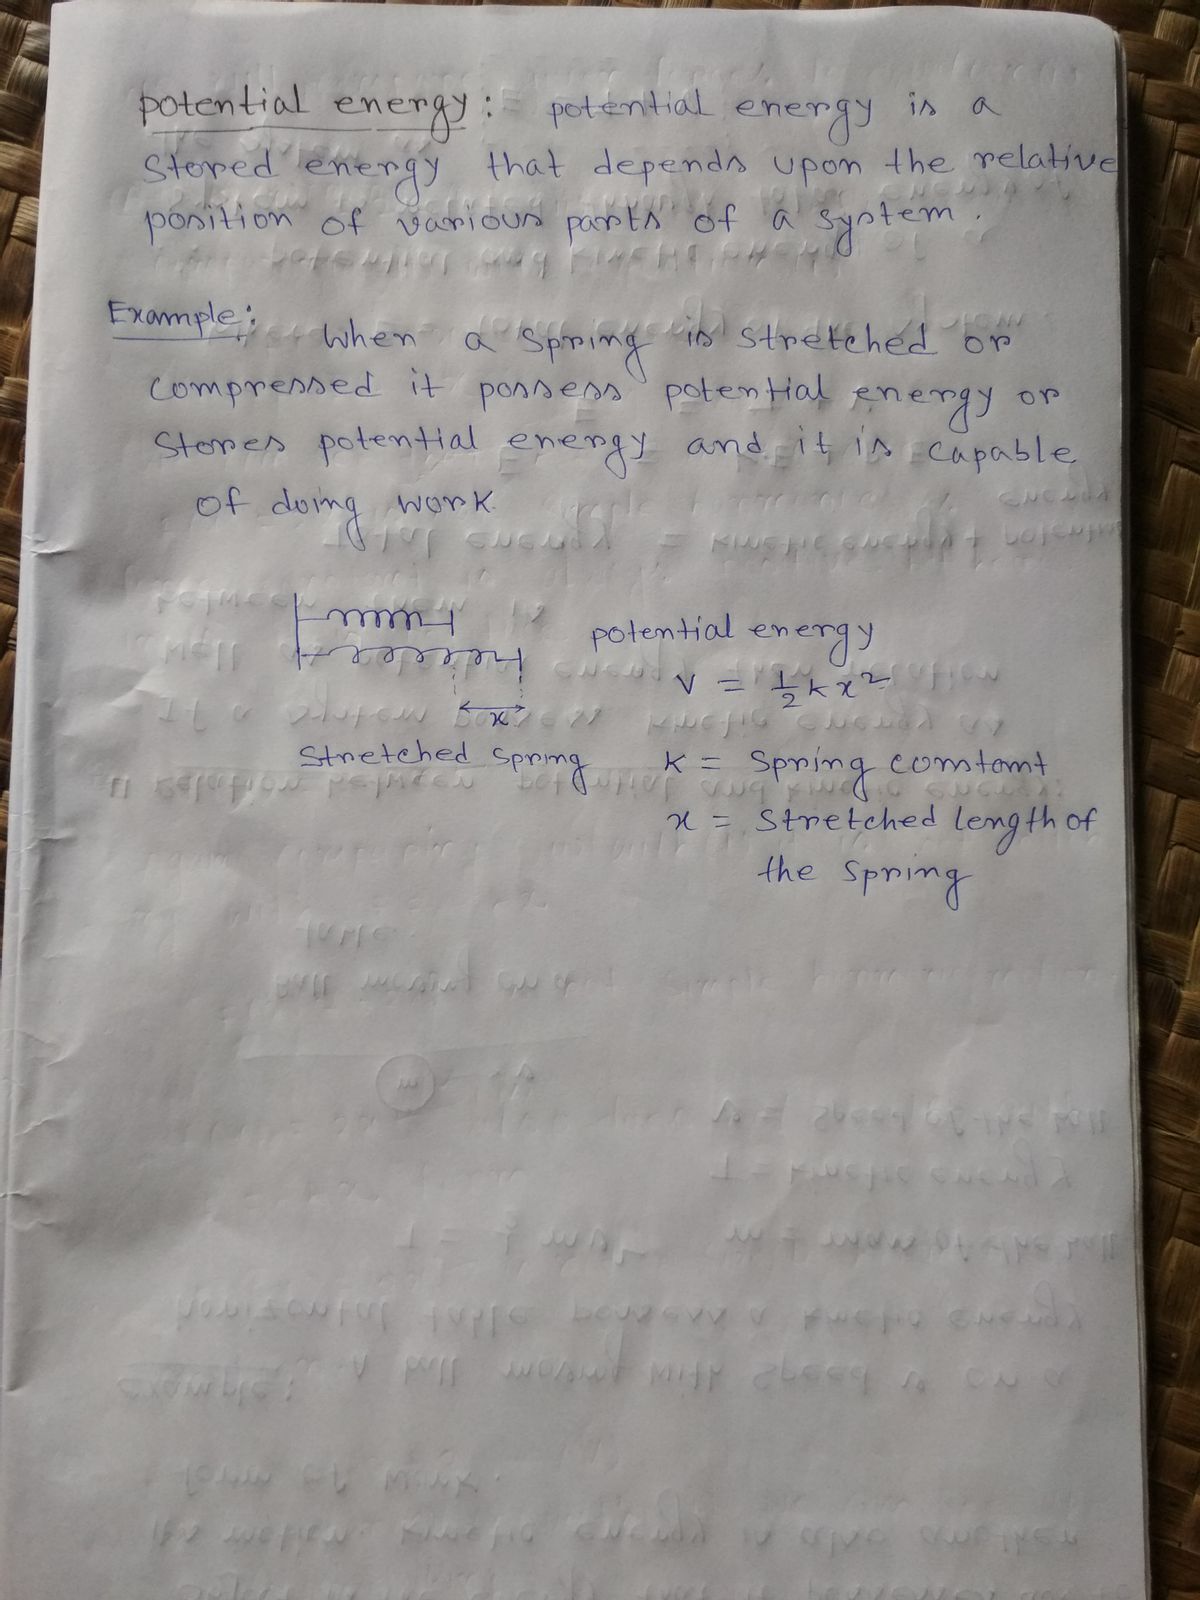 potential energy: potential energy is a
stored energy that depends upon the relative
position of various parts of a system.
Example:
when a spring is stretched or
compressed it possess potential energy or
stores potential energy and it is capable
of doing work.
potential energy
V = 1/2 k x²
x
stretched spring
k = spring constant
x = stretched length of
the spring